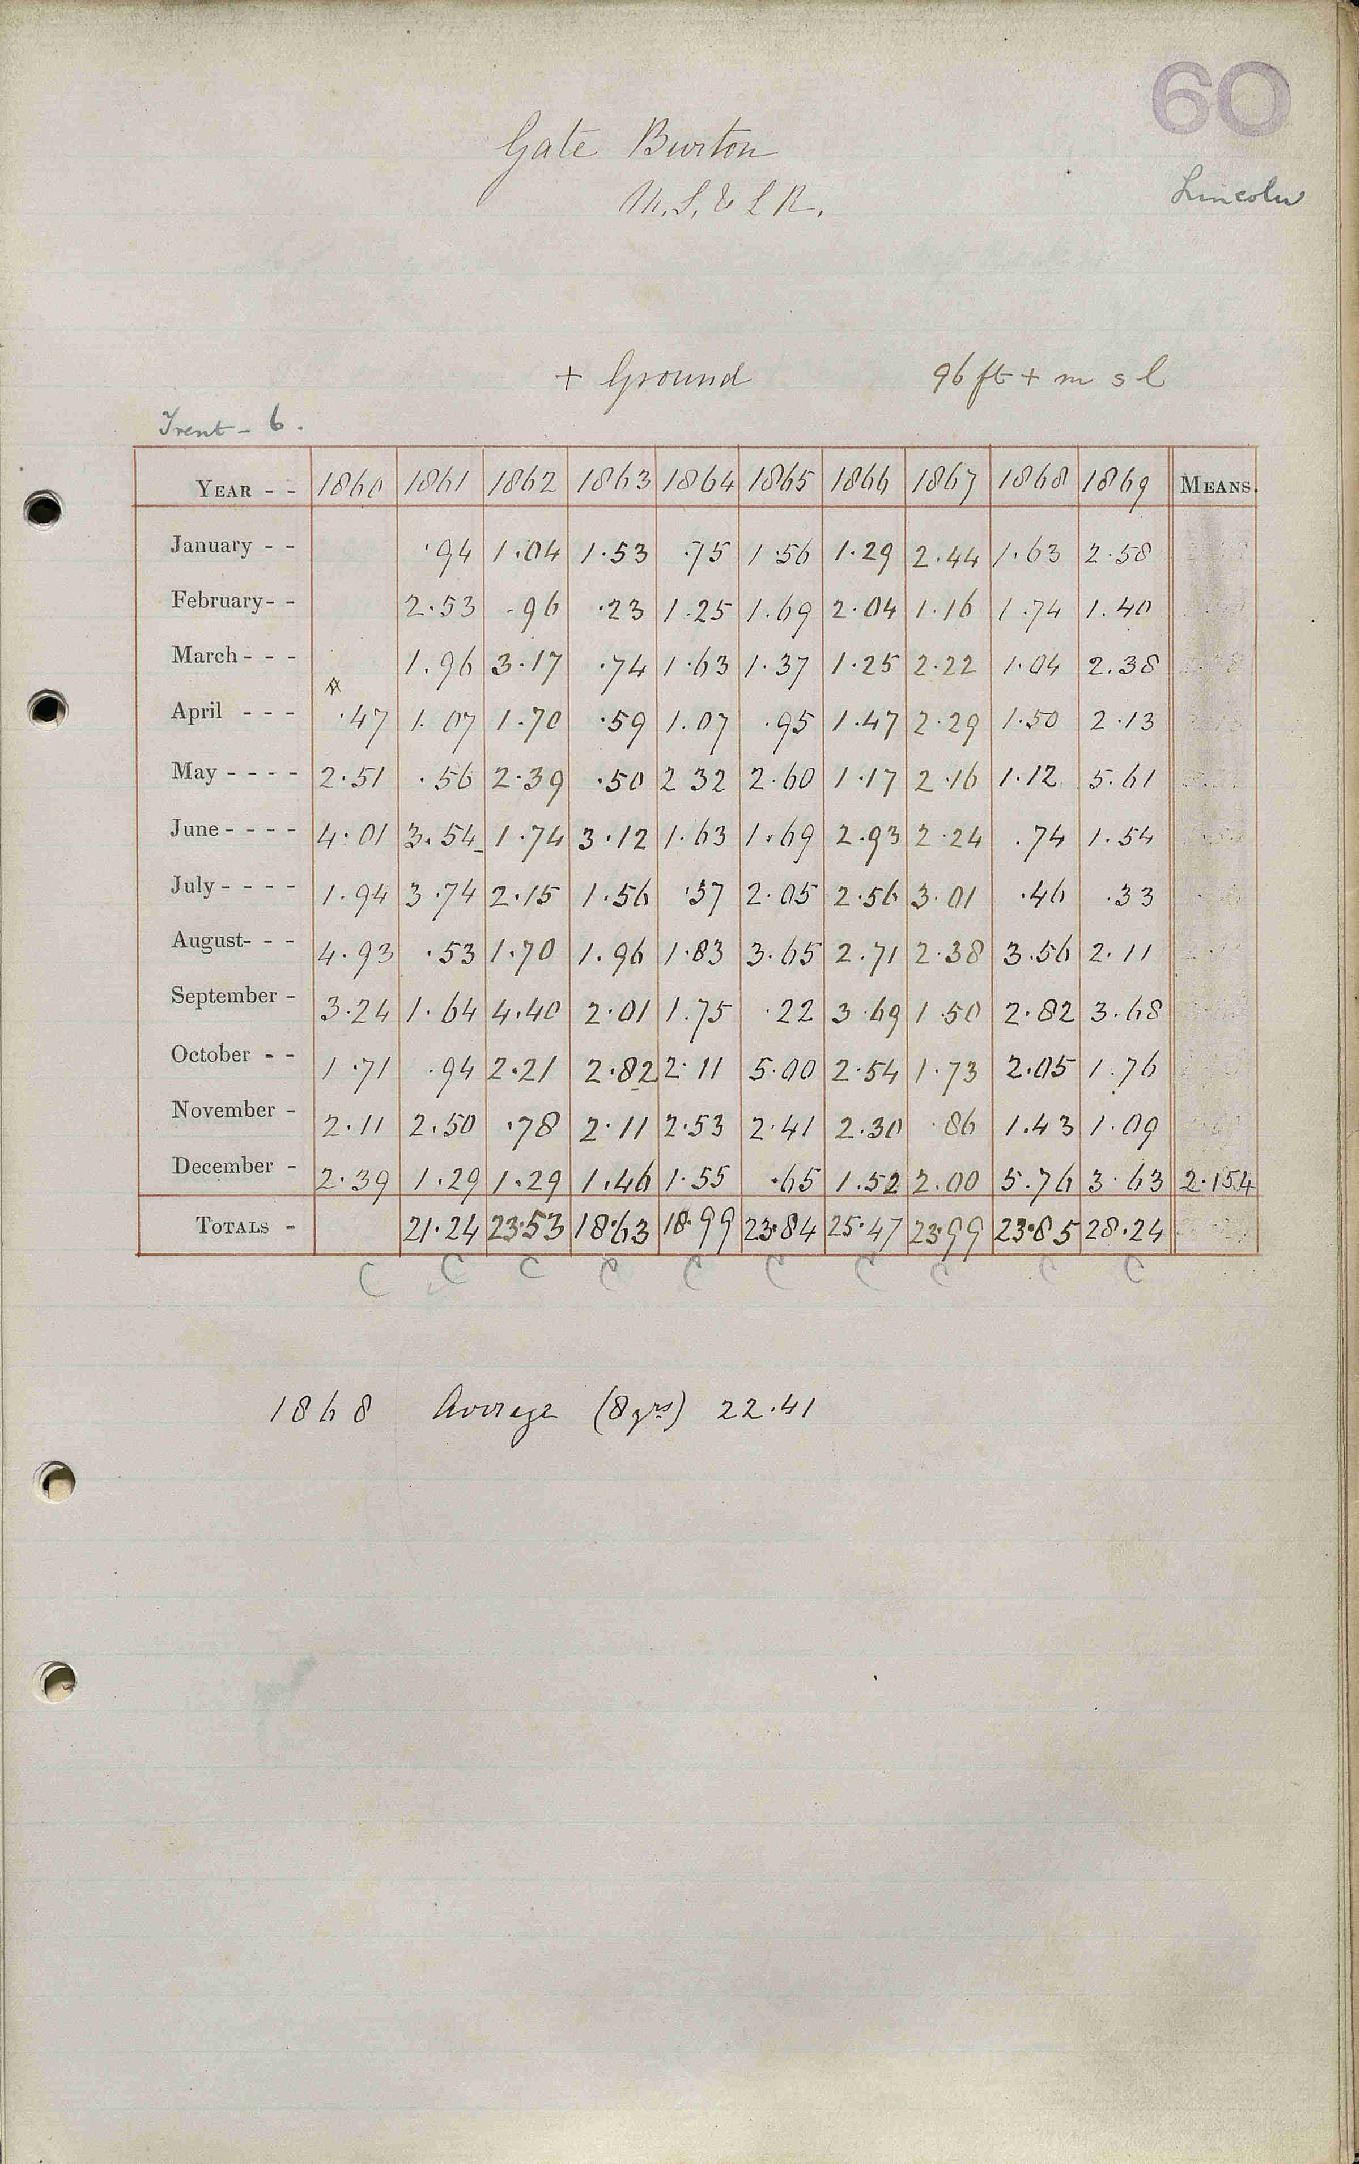 60
Gate Burton
Lincoln
M.S. & L R.
+ Ground 96 ft + m s l
Trent - 6.
YEAR - - 1860 1861 1862 1863 1864 1865 1866 1867 1868 1869 MEANS.
January - - ·94 1·04 1·53 ·75 1·56 1·29 2·44 1·63 2·58
February - - 2·53 ·96 ·23 1·25 1·69 2·04 1·16 1·74 1·40
March - - - 1·96 3·17 ·74 1·63 1·37 1·25 2·22 1·04 2·38
April - - - ·47 1·07 1·70 ·59 1·07 ·95 1·47 2·29 1·50 2·13
May - - - - 2·51 ·56 2·39 ·50 2 32 2·60 1·17 2·16 1·12 5·61
June - - - - 4·01 3·54 1·74 3·12 1·63 1·69 2·93 2·24 ·74 1·54
July - - - - 1·94 3·74 2·15 1·56 ·57 2·05 2·56 3·01 ·46 ·33
August - - - 4·93 ·53 1·70 1·96 1·83 3·65 2·71 2·38 3·56 2·11
September - 3·24 1·64 4·40 2·01 1·75 ·22 3·69 1·50 2·82 3·68
October - - 1·71 ·94 2·21 2·82 2·11 5·00 2·54 1·73 2·05 1·76
November - 2·11 2·50 ·78 2·11 2·53 2·41 2·30 ·86 1·43 1·09
December - 2·39 1·29 1·29 1·46 1·55 ·65 1·52 2·00 5·76 3·63 2·154
TOTALS - 21·24 23·53 18·63 18·99 23·84 25·47 23·99 23·85 28·24
C C C C C C C C C C
1868 Average (8 yrs) 22·41